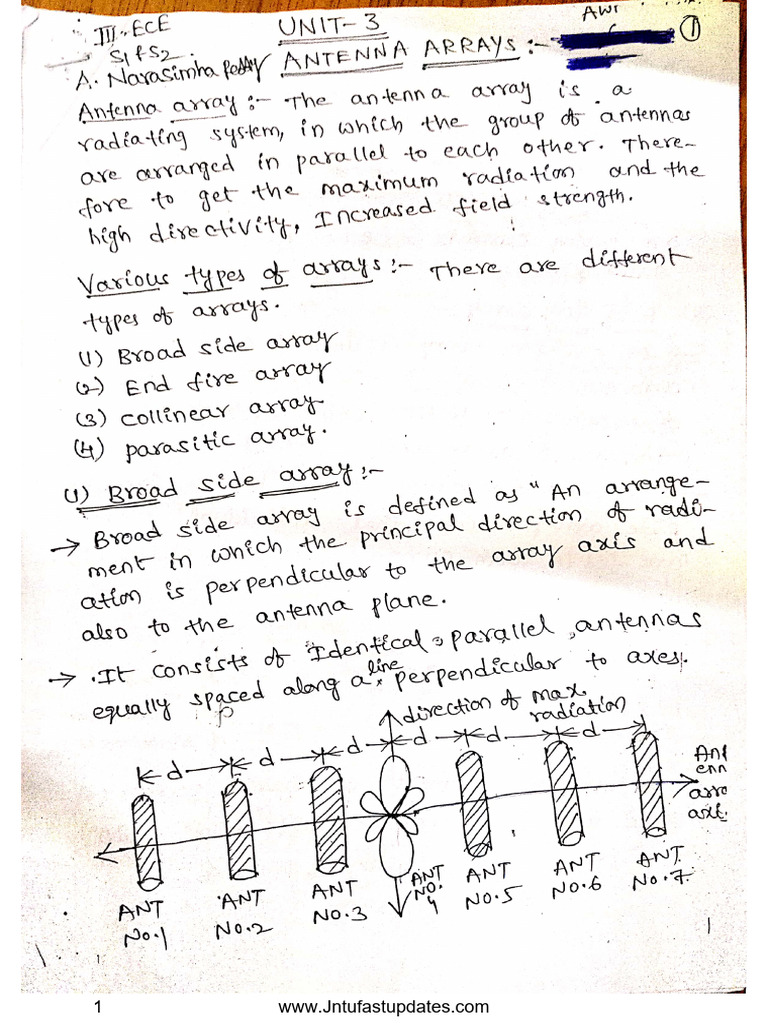 III-ECE
S1 & S2
UNIT-3
AWP
①
A. Narasimha Reddy ANTENNA ARRAYS :-
Antenna array :- The antenna array is a
radiating system, in which the group of antennas
are arranged in parallel to each other. There-
fore to get the maximum radiation and the
high directivity, Increased field strength.
Various types of arrays :- There are different
types of arrays.
(1) Broad side array
(2) End fire array
(3) collinear array
(4) parasitic array.
(1) Broad side array :-
→ Broad side array is defined as "An arrange-
ment in which the principal direction of radi-
ation is perpendicular to the array axis and
also to the antenna plane.
→ It consists of Identical, parallel, antennas
equally spaced along a line perpendicular to axes.
direction of max.
radiation
d d d d d d
Ant
enn
arra
axi
ANT No.1
ANT No.2
ANT No.3
ANT No. 4
ANT No.5
ANT No.6
ANT No.7
1 www.Jntufastupdates.com